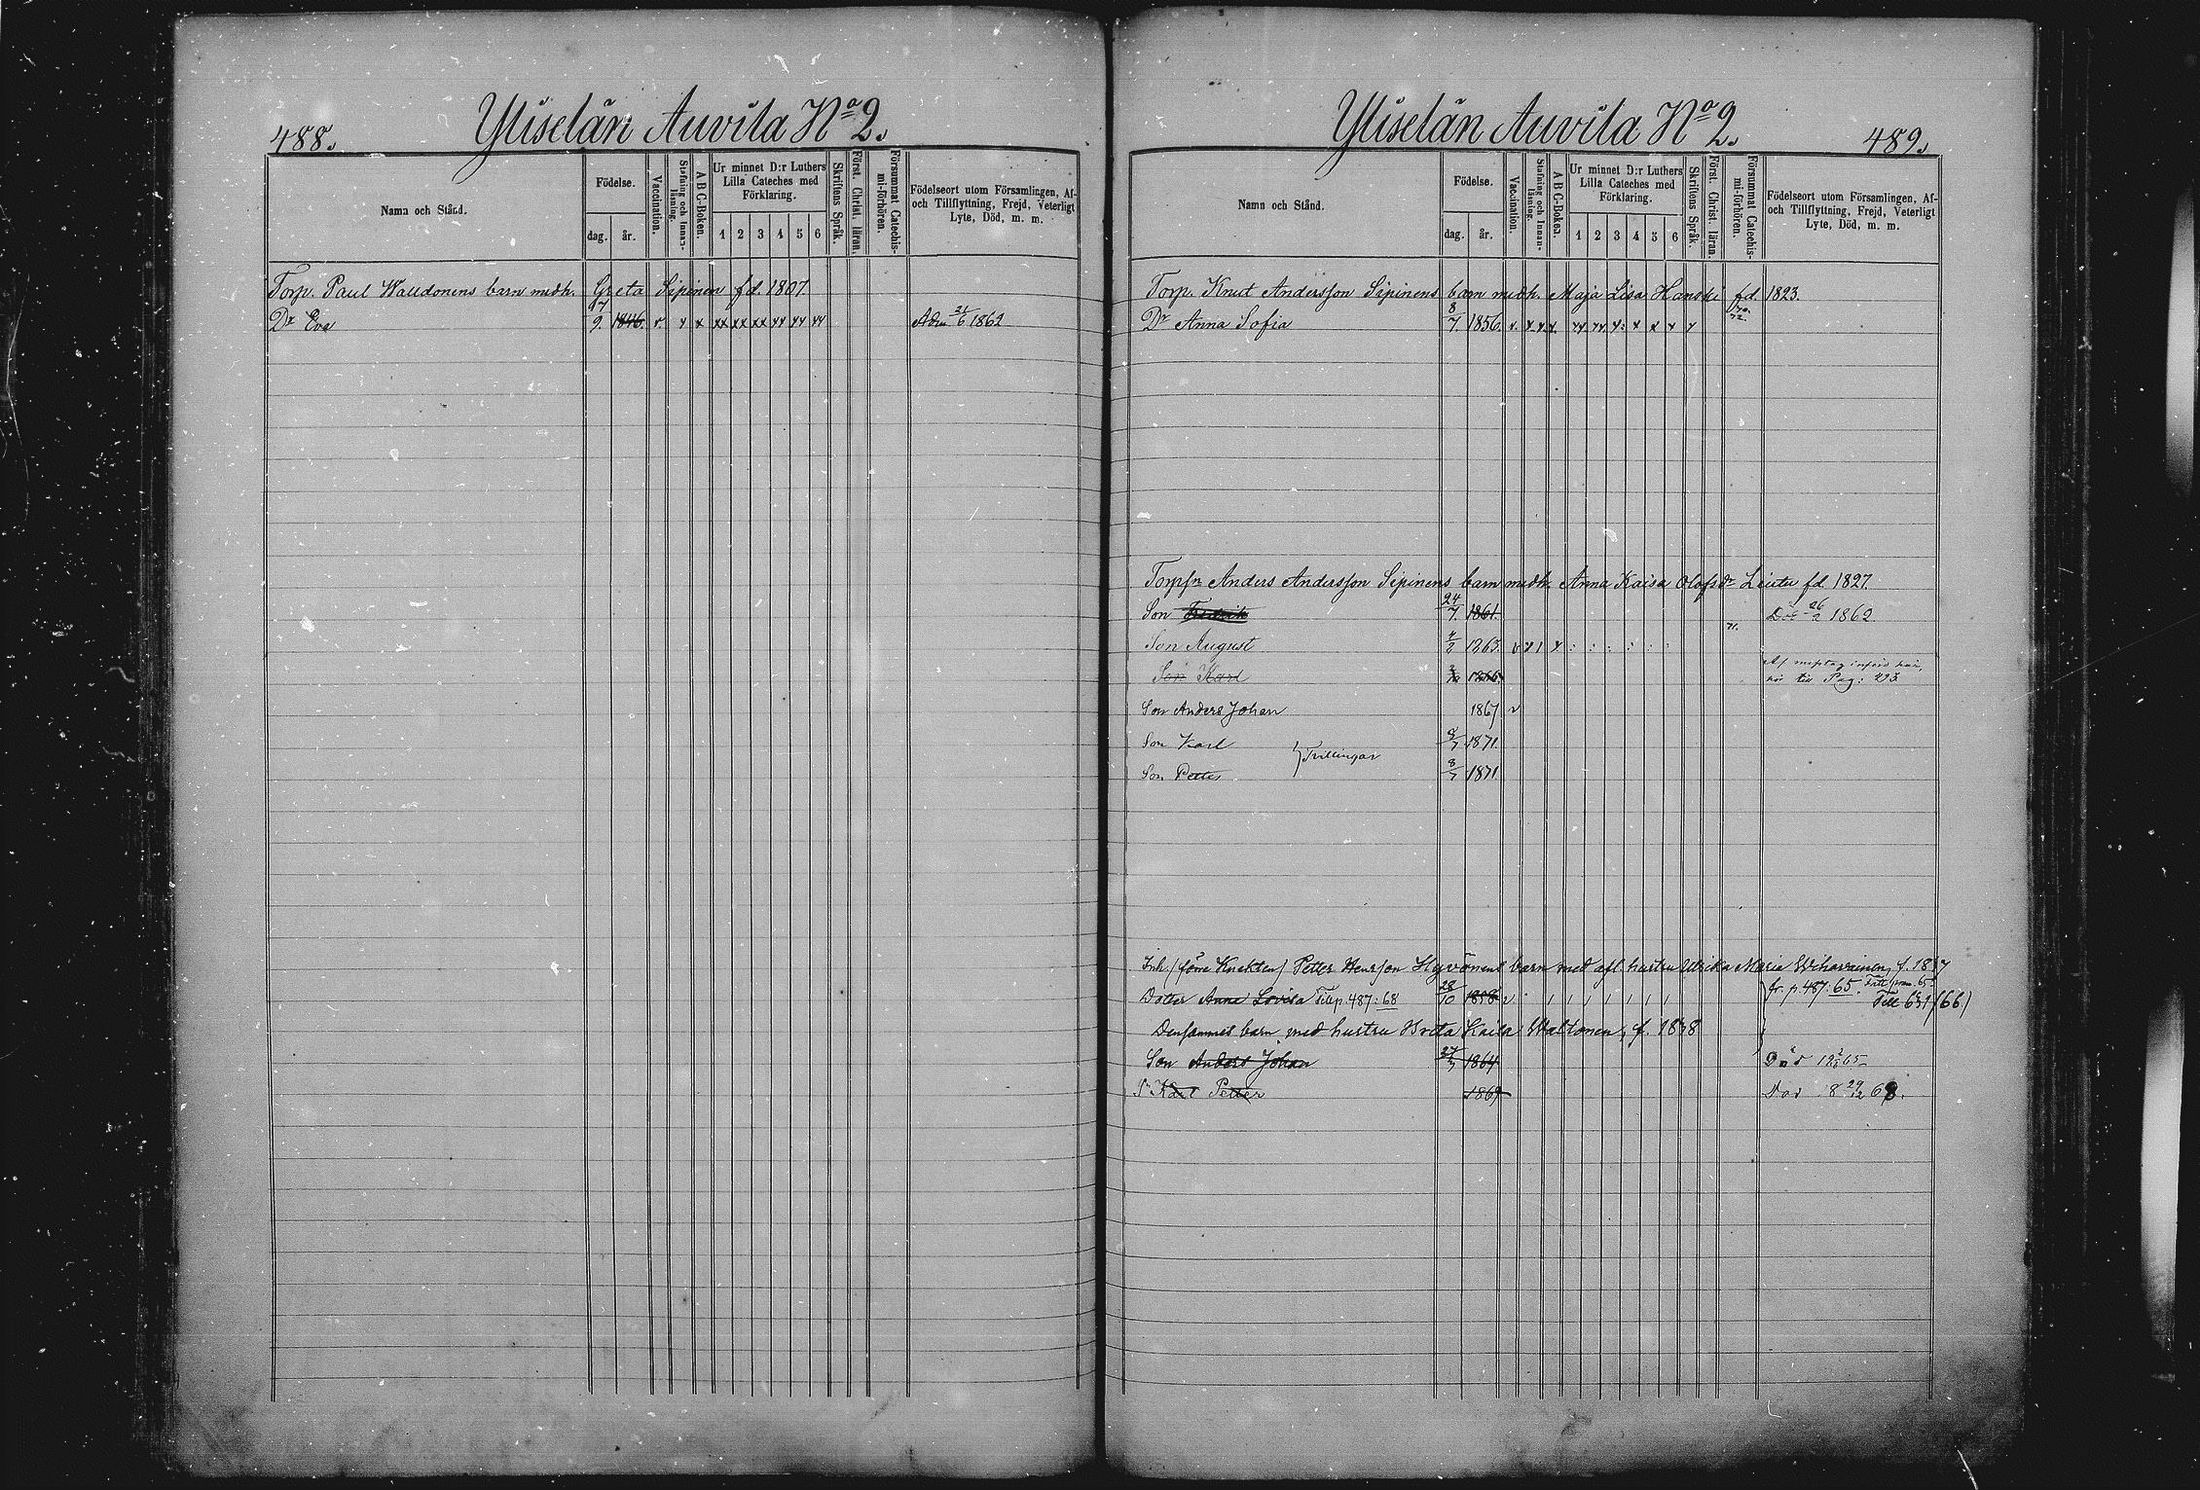 488.
Yliselän Auvila No 2.
Nama och Stånd.
Födelse.
dag. år.
Vaccination.
Stafning och Innan-läsning.
A B C-Boken.
Ur minnet D:r Luthers
Lilla Cateches med
Förklaring.
1 2 3 4 5 6
Skriftens Språk.
Först. Christ. läran.
Försummat Catechis-mi-förhören.
Födelseort utom Församlingen, Af-
och Tillflyttning, Frejd, Veterligt
Lyte, Död, m. m.
Torp. Paul Walldonens barn medh. Greta Sipinen fd. 1807.
Dr Eva 9. 1846. v. x x xx xx xx xx xx xx Adm 24/6 1862
Yliselän Auvila No 2.
489.
Nama och Stånd.
Födelse.
dag. år.
Vaccination.
Stafning och Innan-läsning.
A B C-Boken.
Ur minnet D:r Luthers
Lilla Cateches med
Förklaring.
1 2 3 4 5 6
Skriftens Språk.
Först. Christ. läran.
Försummat Catechis-mi-förhören.
Födelseort utom Församlingen, Af-
och Tillflyttning, Frejd, Veterligt
Lyte, Död, m. m.
Torp. Knut Andersson Sipinens barn medh. Maja Lisa Hanski fd. 1823.
Dr Anna Sofia 8/7. 1856.
Torpsn Anders Andersson Sipinens barn medh. Anna Kaisa Olofsdr Leutu fd. 1827.
Son Fredrik 24/7. 1861. Död 26/2 1862.
Son August 1863.
Son Karl 1866. Af misstag införd här,
hör till Pag: 493
Son Anders Johan 1867 v
Son Karl 8/7 1871.
} Tvillingar
Son Petter 8/7 1871
Inh. (förre Knekten) Petter Henrsson Hyvönens barn med afl. hustru Ulrika Maria Wiharainen, f. 1837
Dotter Anna Lovisa Till p. 487: 68 28/10 1858 v fr. p. 487: 65. Till 631 (66)
Densammes barn med hustru Brita Kaisa Waltonen, f. 1838
Son Anders Johan 27/7 1864 Död 65
Sn Karl Petter 1867 Död 18 29/12 68.